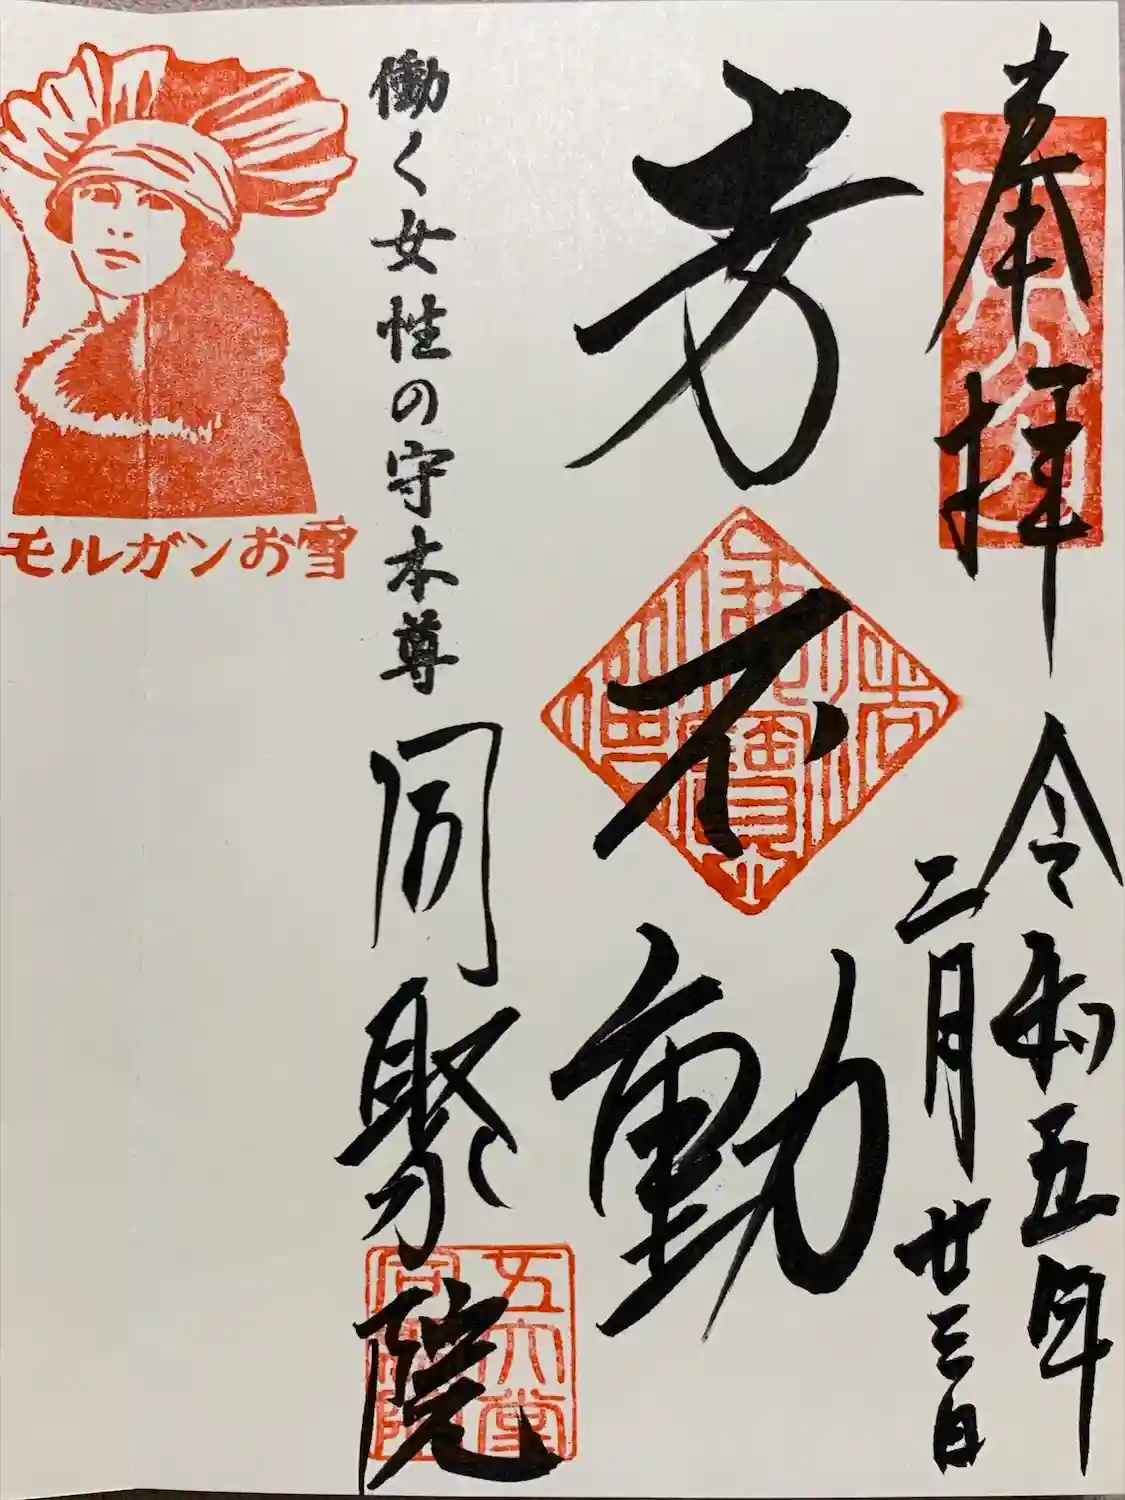 奉拝
令和五年
二月廿三日
十万不動
佛法僧寶
働く女性の守本尊
同聚院
五大堂
同聚院
モルガンお雪